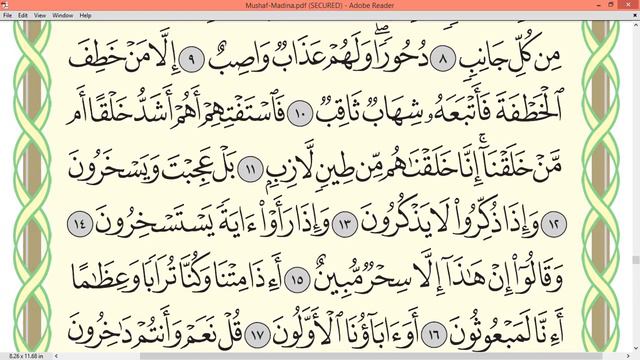 Mushaf-Madina.pdf (SECURED) - Adobe Reader
File Edit View Window Help
مِن كُلِّ جَانِبٍ ٨ دُحُورًاۖ وَلَهُمْ عَذَابٌ وَاصِبٌ ٩ إِلَّا مَنْ خَطِفَ
ٱلْخَطْفَةَ فَأَتْبَعَهُۥ شِهَابٌ ثَاقِبٌ ١٠ فَٱسْتَفْتِهِمْ أَهُمْ أَشَدُّ خَلْقًا أَم
مَّنْ خَلَقْنَآۚ إِنَّا خَلَقْنَٰهُم مِّن طِينٍ لَّازِبٍۭ ١١ بَلْ عَجِبْتَ وَيَسْخَرُونَ
١٢ وَإِذَا ذُكِّرُوا۟ لَا يَذْكُرُونَ ١٣ وَإِذَا رَأَوْا۟ ءَايَةً يَسْتَسْخِرُونَ ١٤
وَقَالُوٓا۟ إِنْ هَٰذَآ إِلَّا سِحْرٌ مُّبِينٌ ١٥ أَءِذَا مِتْنَا وَكُنَّا تُرَابًا وَعِظَٰمًا
أَءِنَّا لَمَبْعُوثُونَ ١٦ أَوَءَابَآؤُنَا ٱلْأَوَّلُونَ ١٧ قُلْ نَعَمْ وَأَنتُمْ دَٰخِرُونَ
8.26 x 11.68 in